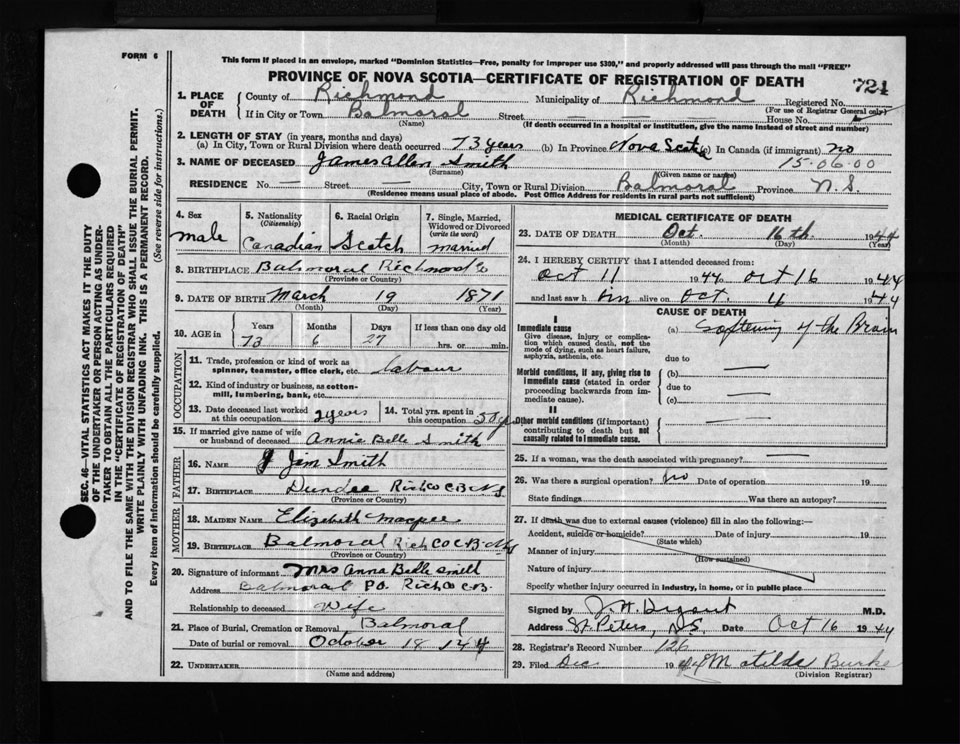 FORM 6
This form if placed in an envelope, marked "Dominion Statistics—Free, penalty for improper use $300," and properly addressed will pass through the mail "FREE"
PROVINCE OF NOVA SCOTIA—CERTIFICATE OF REGISTRATION OF DEATH
721
1. PLACE OF DEATH
County of Richmond Municipality of Richmond Registered No.
(For use of Registrar General only)
If in City or Town Balmoral Street — — — House No.
(Name) (If death occurred in a hospital or institution, give the name instead of street and number)
2. LENGTH OF STAY (in years, months and days)
(a) In City, Town or Rural Division where death occurred 73 years (b) In Province Nova Scotia (c) In Canada (if immigrant) no
15-06-00
3. NAME OF DECEASED James Allen Smith
(Surname) (Given name or names)
RESIDENCE No. — Street — City, Town or Rural Division Balmoral Province N.S.
(Residence means usual place of abode. Post Office Address for residents in rural parts not sufficient)
4. Sex male
5. Nationality (Citizenship) Canadian
6. Racial Origin Scotch
7. Single, Married, Widowed or Divorced (write the word) married
8. BIRTHPLACE Balmoral Richmond Co
(Province or Country)
9. DATE OF BIRTH March 19 1871
(Month) (Day) (Year)
10. AGE in Years Months Days If less than one day old
73 6 27 hrs. or min.
OCCUPATION
11. Trade, profession or kind of work as spinner, teamster, office clerk, etc. labour
12. Kind of industry or business, as cotton-mill, lumbering, bank, etc.
13. Date deceased last worked at this occupation 2 years
14. Total yrs. spent in this occupation 50 y
15. If married give name of wife or husband of deceased Annie Belle Smith
FATHER
16. NAME Jim Smith
17. BIRTHPLACE Dundee Rich Co C B N S
(Province or Country)
MOTHER
18. MAIDEN NAME Elizabeth
19. BIRTHPLACE Balmoral Rich Co C B N S
(Province or Country)
20. Signature of informant Mrs Anna Belle Smith
Address Balmoral P.O. Rich Co C B.
Relationship to deceased Wife
21. Place of Burial, Cremation or Removal Balmoral
Date of burial or removal October 18 1944
22. UNDERTAKER
(Name and address)
MEDICAL CERTIFICATE OF DEATH
23. DATE OF DEATH Oct. 16th 1944
(Month) (Day) (Year)
24. I HEREBY CERTIFY that I attended deceased from:
Oct 11 1944 Oct 16 1944
and last saw him alive on Oct. 16 1944
CAUSE OF DEATH
I
Immediate cause
Give disease, injury or complication which caused death, not the mode of dying, such as heart failure, asphyxia, asthenia, etc.
(a) Softening of the Brain
due to
Morbid conditions, if any, giving rise to immediate cause (stated in order proceeding backwards from immediate).
(b) —
due to
(c) —
II
Other morbid conditions (if important) contributing to death but not causally related to immediate cause.
25. If a woman, was the death associated with pregnancy? —
26. Was there a surgical operation? no Date of operation 19
State findings Was there an autopsy?
27. If death was due to external causes (violence) fill in also the following:—
Accident, suicide or homicide? Date of injury 19
(State which)
Manner of injury
(How sustained)
Nature of injury
Specify whether injury occurred in industry, in home, or in public place
Signed by M.D.
Address St. Peters, N.S. Date Oct 16 1944
28. Registrar's Record Number 126
29. Filed Dec 1944 Matilda Burke
(Division Registrar)
SEC. 46—VITAL STATISTICS ACT MAKES IT THE DUTY
OF THE UNDERTAKER OR PERSON ACTING AS UNDER-
TAKER TO OBTAIN ALL THE PARTICULARS REQUIRED
IN THE "CERTIFICATE OF REGISTRATION OF DEATH"
AND TO FILE THE SAME WITH THE DIVISION REGISTRAR WHO SHALL ISSUE THE BURIAL PERMIT.
WRITE PLAINLY WITH UNFADING INK. THIS IS A PERMANENT RECORD.
Every item of information should be carefully supplied. (See reverse side for instructions.)